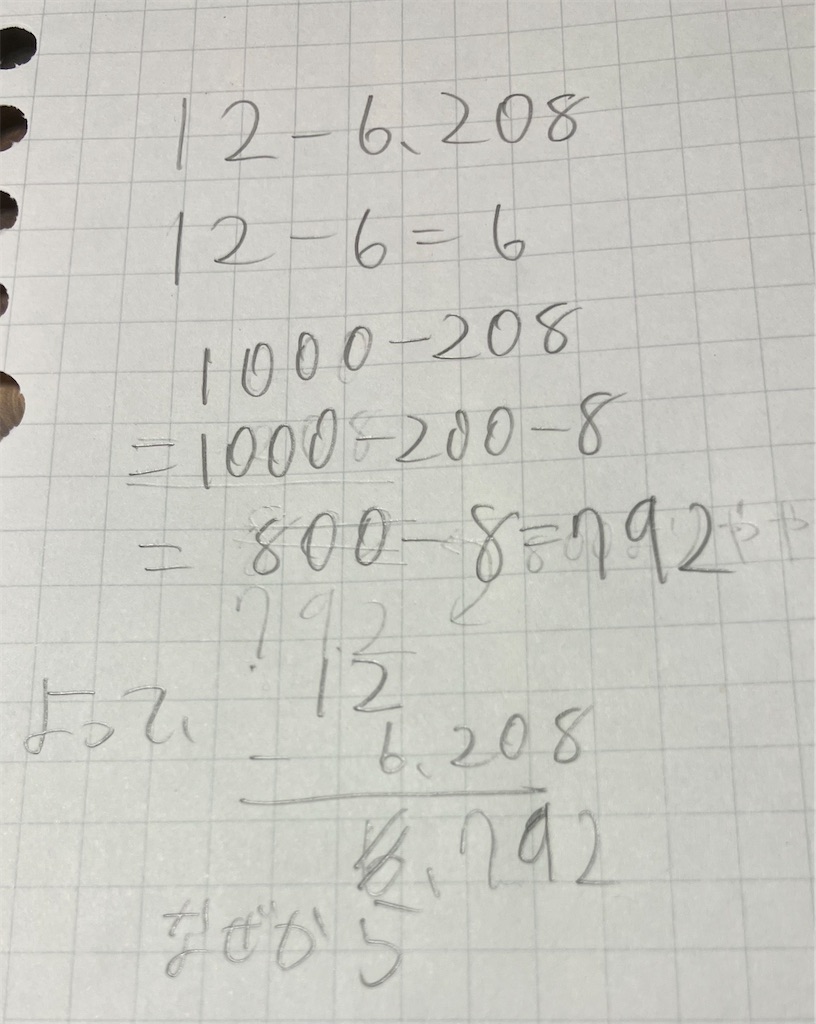 12-6、208
12-6=6
1000-208
=1000-200-8
=800-8=792
792
よって、
12
- 6、208
6、792
なぜか5